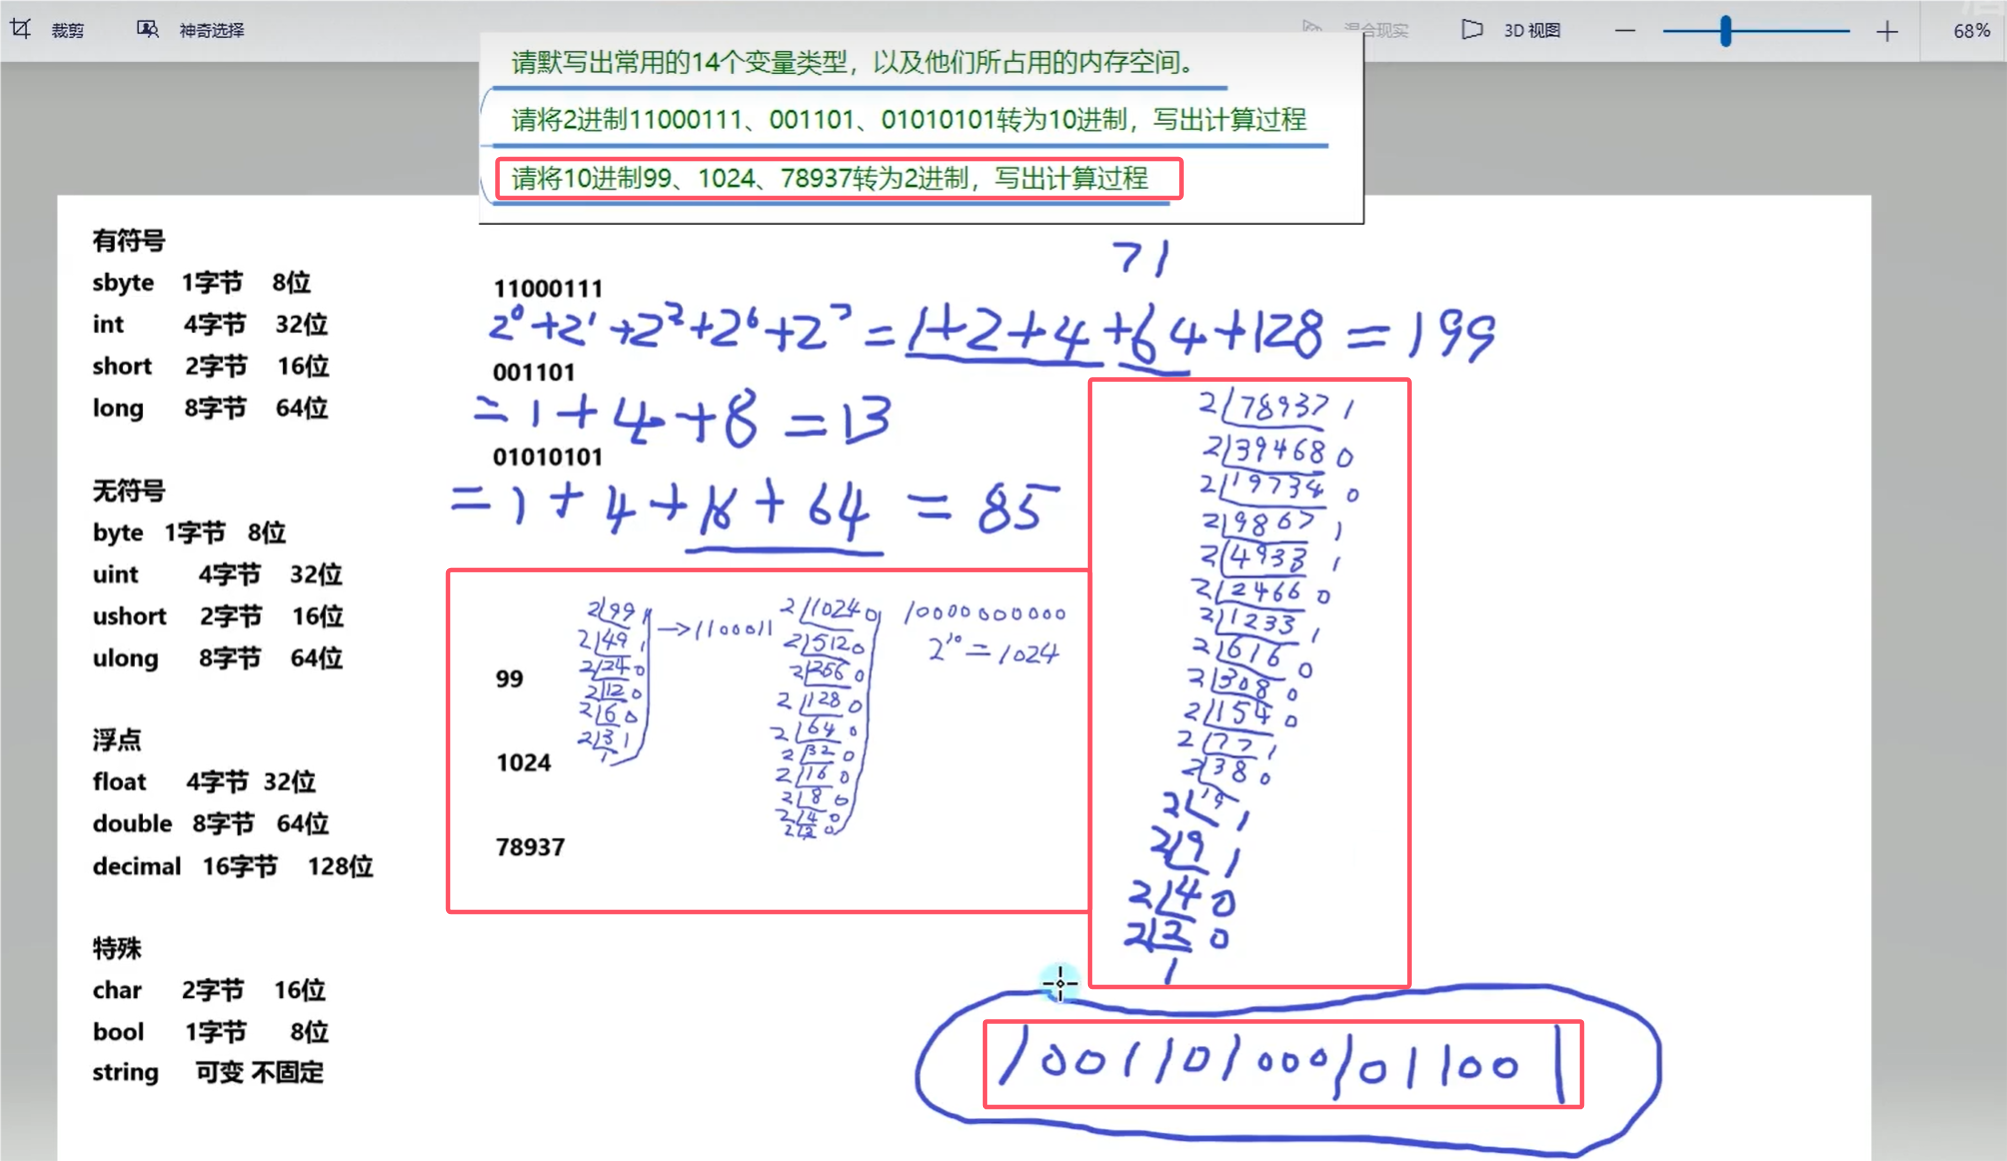 裁剪 神奇选择 混合现实 3D 视图 68%
请默写出常用的14个变量类型，以及他们所占用的内存空间。
请将2进制11000111、001101、01010101转为10进制，写出计算过程
请将10进制99、1024、78937转为2进制，写出计算过程
有符号
sbyte 1字节 8位
int 4字节 32位
short 2字节 16位
long 8字节 64位
无符号
byte 1字节 8位
uint 4字节 32位
ushort 2字节 16位
ulong 8字节 64位
浮点
float 4字节 32位
double 8字节 64位
decimal 16字节 128位
特殊
char 2字节 16位
bool 1字节 8位
string 可变 不固定
71
11000111
2⁰+2¹+2²+2⁶+2⁷=1+2+4+64+128=199
001101
=1+4+8=13
01010101
=1+4+16+64=85
99
1024
78937
2 99 1
2 49 1
2 24 0
2 12 0
2 6 0
2 3 1
1
→1100011
2 1024 0
2 512 0
2 256 0
2 128 0
2 64 0
2 32 0
2 16 0
2 8 0
2 4 0
2 2 0
10000000000
2¹⁰=1024
2 78937 1
2 39468 0
2 19734 0
2 9867 1
2 4933 1
2 2466 0
2 1233 1
2 616 0
2 308 0
2 154 0
2 77 1
2 38 0
2 19 1
2 9 1
2 4 0
2 2 0
1
10011010001011001